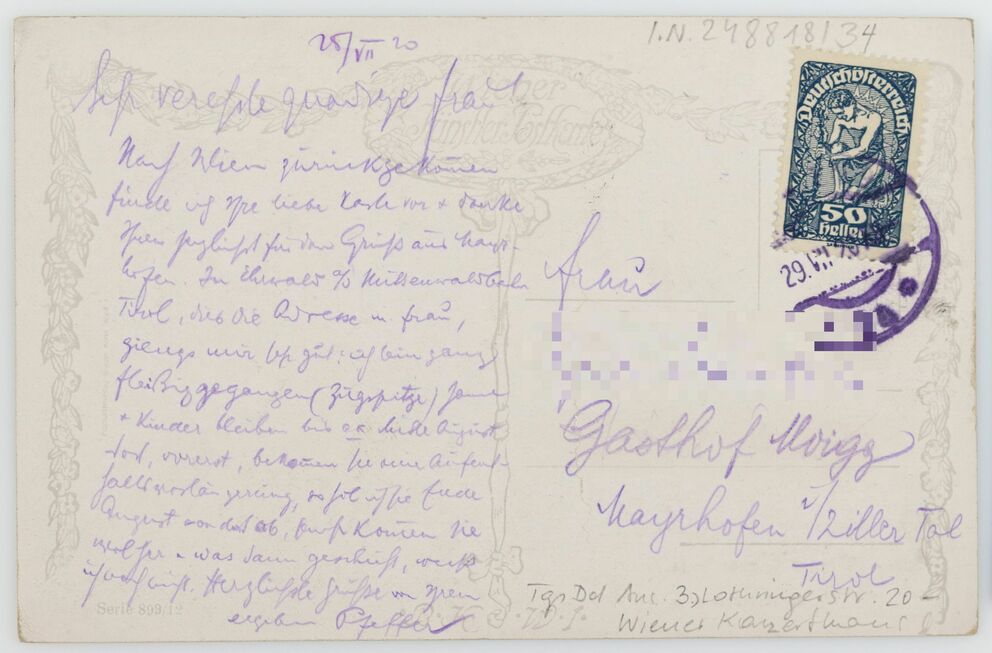 28/VII 20
I.N. 248818/34
Sehr verehrte gnädige Frau
Nach Wien zurückgekommen
finde ich Ihre liebe Karte vor + danke
Ihnen herzlichst für den Gruß aus Mayr-
hofen. In Ehrwald a/d Mittenwaldbahn
Tirol, dies die Adresse m. Frau,
giengs mir sehr gut: ich bin ganz
fleißig gegangen (Zugspitze)
+ Kinder bleiben bis ca Mitte August
dort, vorerst, bekommen sie eine Aufent-
haltsverlängerung, so hol ich sie Ende
August von dort ab, sonst kommen sie
was dann geschieht, weiß
ich noch nicht. Herzlichste Grüße von Ihrem
ergeben
Serie 899/12
Deutschösterreich
50
Heller
29.VII
Frau
Gasthof Moigg
Mayrhofen i/Ziller Tal
Tirol
3., Lothringerstr. 20 –
Wiener Konzerthaus